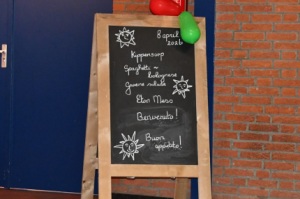 8 april
2026
Kippensoup
Spaghetti
bolognese
Groene salade
Eton Mess
Benvenuto!
Buon
appetito!